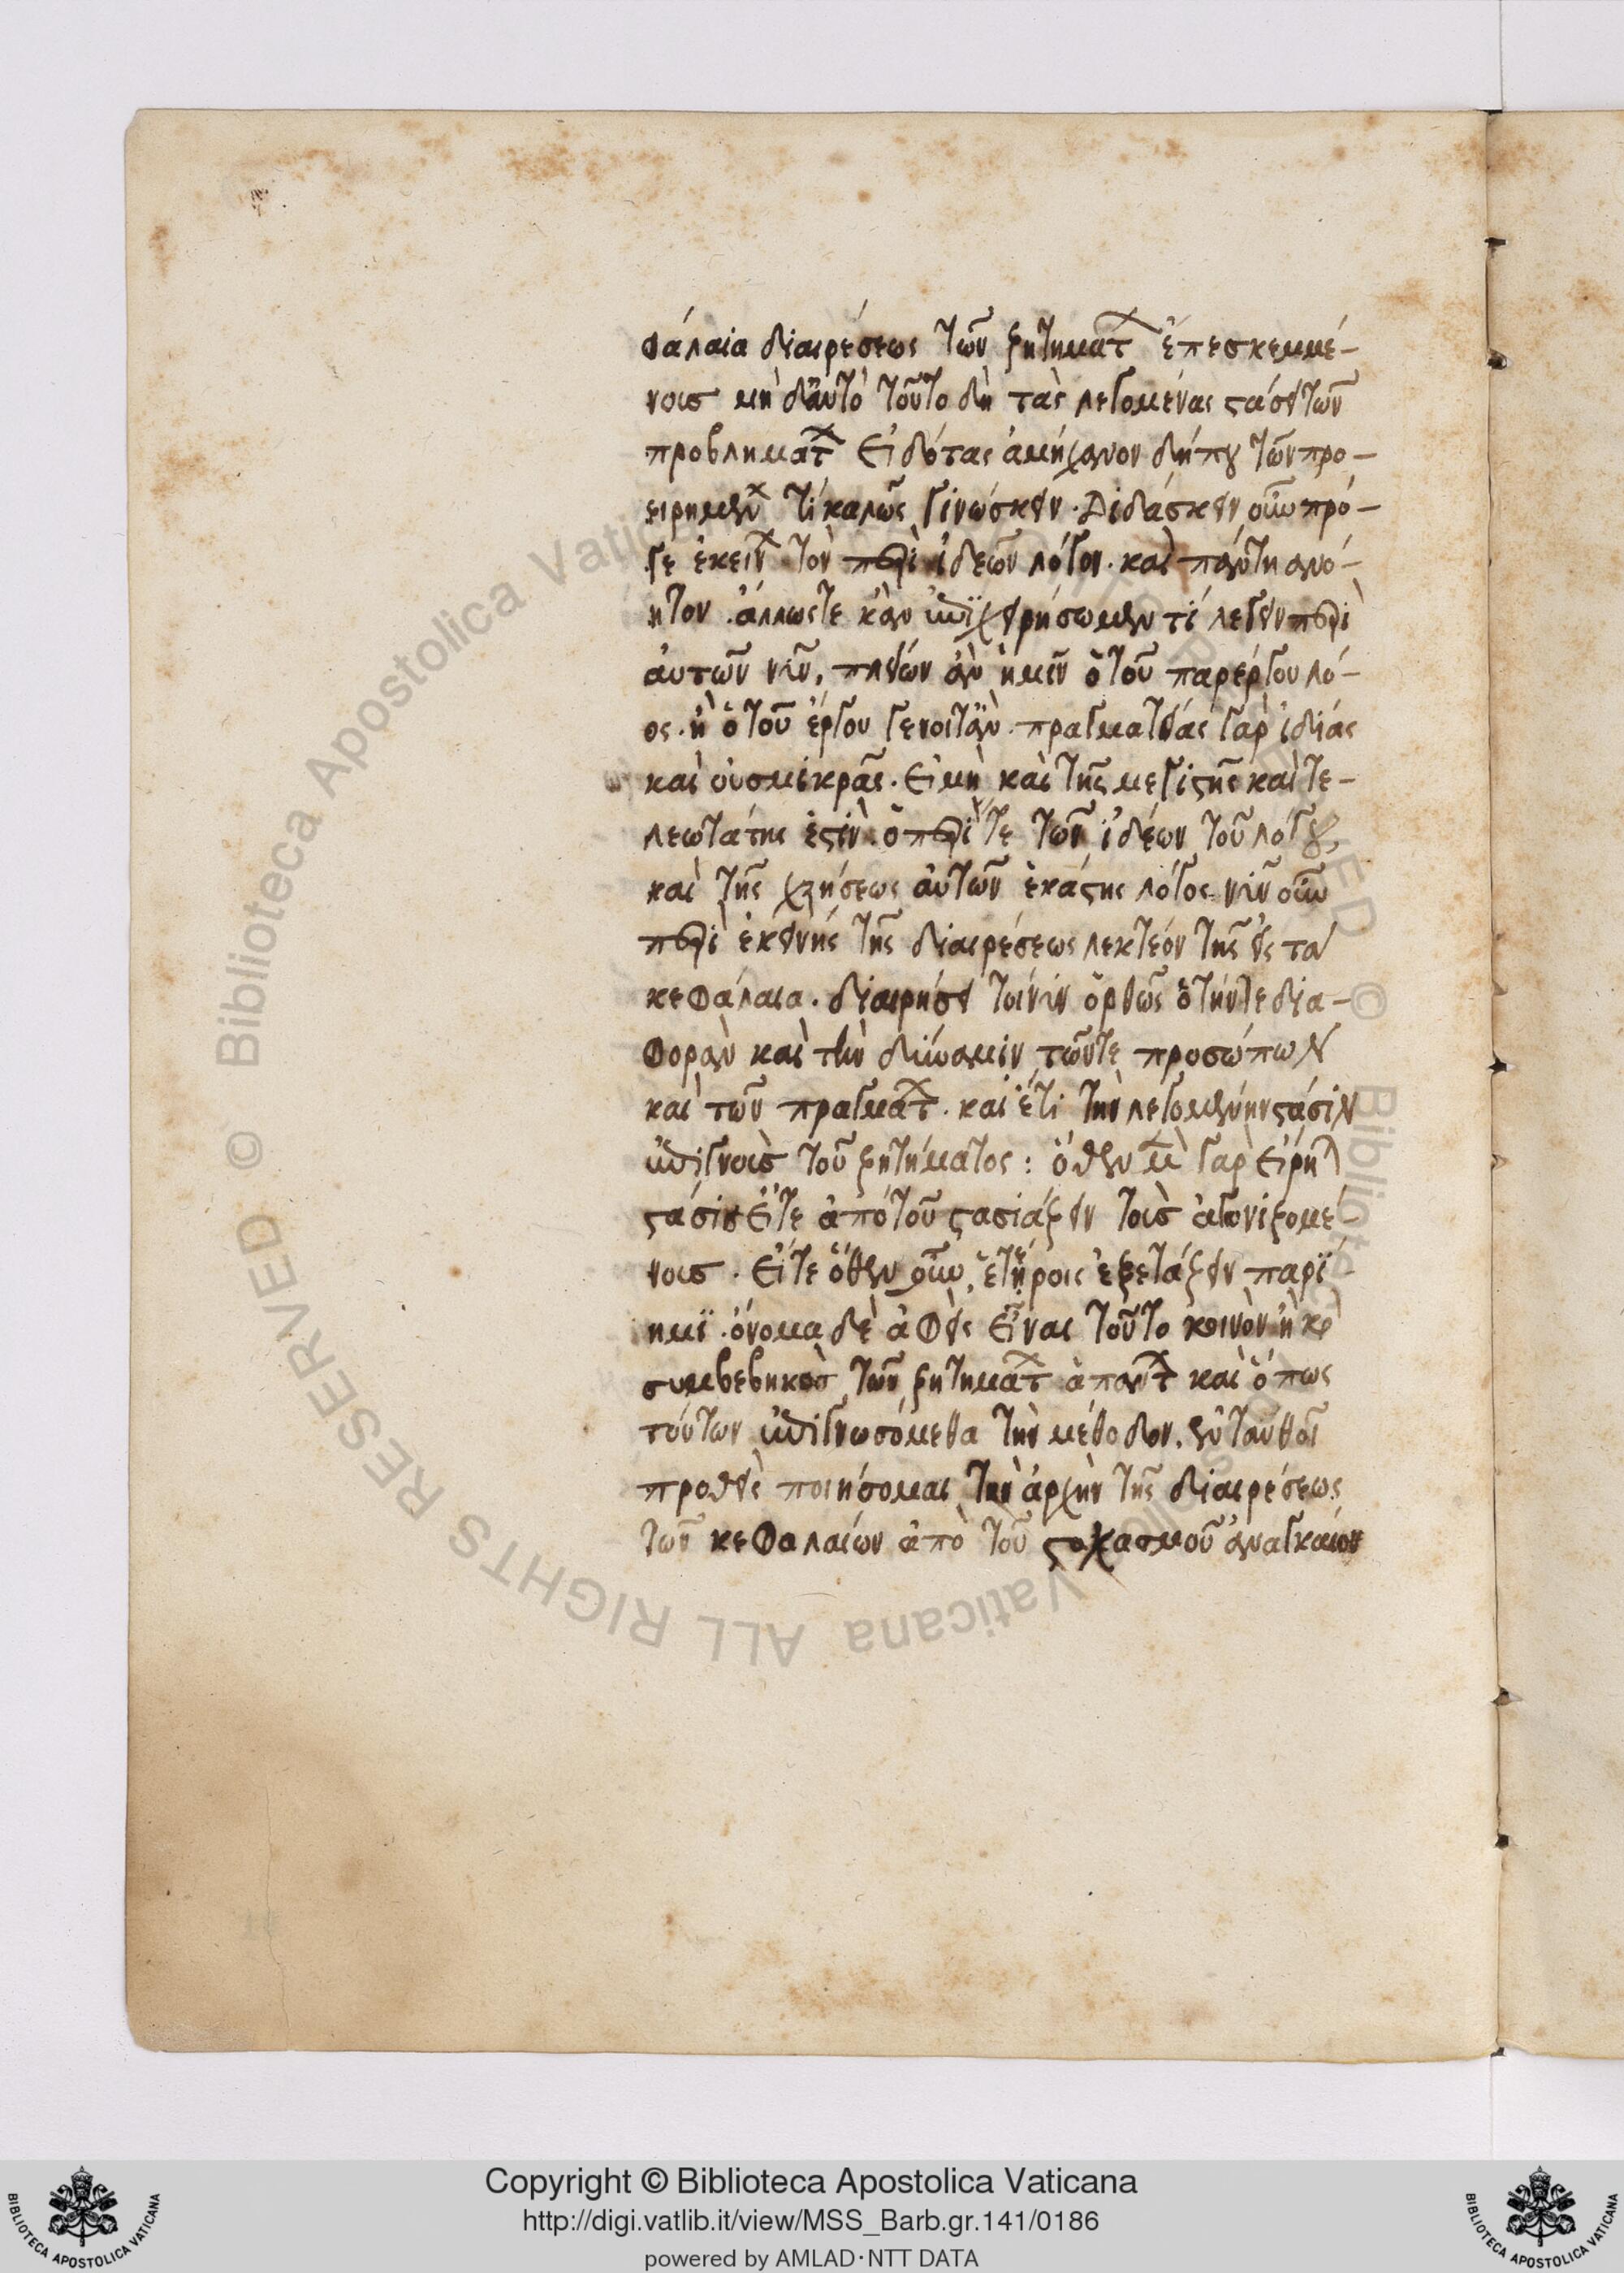 φάλαια διαιρέσεως τῶν ζητημάτ ἐπεσκεμμέ-
νοις μὴ διαυτὸ τοῦτο δὴ τὰς λεγομένας στάσει τῶν
προβλημάτ εἰδότας ἀμήχανον δήπου τῶν προ-
ειρημέν τί καλῶς γινώσκειν. Διδάσκειν οὖν πρό-
γε ἐκείν τὸν περὶ ἰδεῶν λόγον. καὶ πάντη ἀνό-
ητον. ἄλλωστε κἂν ἐπιχειρήσωμεν τί λέγειν περὶ
αὐτῶν νῦν, πλείων ἂν ἡμῖν ὁ τοῦ παρέργου λό-
ος. ἢ ὁ τοῦ ἔργου γενοιτἂν. πραγματείας γὰρ ἰδίας
καὶ οὐ σμικρᾶς. εἰ μὴ καὶ τῆς μεγίστης καὶ τε-
λεωτάτης ἐστὶν. ὁ περί τε τῶν ἰδέων τοῦ λόγου,
καὶ τῆς χρήσεως αὐτῶν ἑκάστης λόγος. νῦν οὖν
περὶ ἐκείνης τῆς διαιρέσεως λεκτέον τῆς εἰς τα
κεφάλαια. διαιρήσει τοίνυν ὀρθῶς ὁ τήν τε δια-
φορὰν καὶ τὴν δύναμιν τῶν τε προσώπων
καὶ τῶν πραγμάτ. καὶ ἔτι τὴν λεγομένην στάσιν
ἐπιγνοὺς τοῦ ζητήματος: ὅθεν μὲν γὰρ εἴρηται
στάσις εἴτε ἀπὸ τοῦ στασιάζειν τοὺς ἀγωνιζομέ-
νους. εἴτε ὅθεν οὖν, ἑτέροις ἐξετάζειν παρί-
ημι. ὄνομα δὲ ἀφεὶς εἶναι τοῦτο κοινὸν ἢ κατὰ
συμβεβηκὸς τῶν ζητημάτ ἁπάντ καὶ ὅπως
τούτων ἐπιγνωσόμεθα τὴν μέθοδον. ἐνταυθοῖ
προθεὶς ποιήσομαι τὴν ἀρχὴν τῆς διαιρέσεως
τῶν κεφαλαίων ἀπὸ τοῦ στοχασμοῦ ἀναγκαίον
Copyright © Biblioteca Apostolica Vaticana
http://digi.vatlib.it/view/MSS_Barb.gr.141/0186
powered by AMLAD·NTT DATA
BIBLIOTECA APOSTOLICA VATICANA
BIBLIOTECA APOSTOLICA VATICANA
© Biblioteca Apostolica Vaticana ALL RIGHTS RESERVED